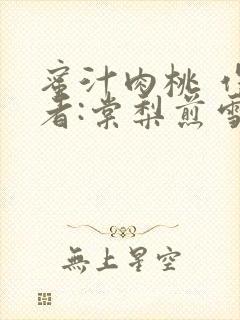 蜜汁肉桃
者:棠梨煎雪
無上星空